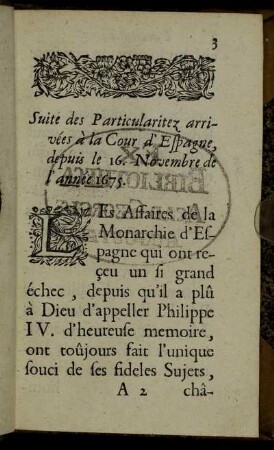 3
Suite des Particularitez arri-
vées à la Cour d'Espagne,
depuis le 16. Novembre de
l'année 1675.
LEs Affaires de la
Monarchie d'Es-
pagne qui ont re-
çeu un si grand
échec, depuis qu'il a plû
à Dieu d'appeller Philippe
IV. d'heureuse memoire,
ont toûjours fait l'unique
souci de ses fideles Sujets,
A 2 châ-